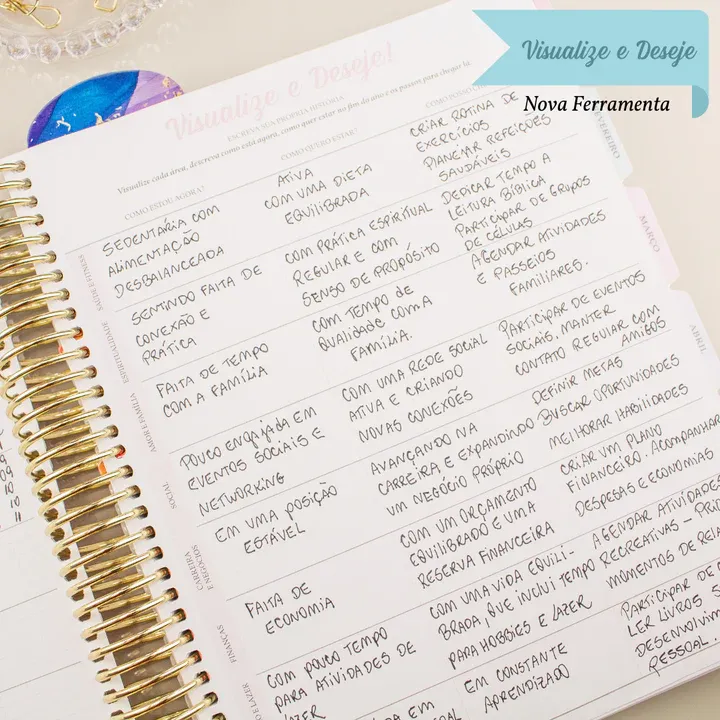 Visualize e Deseje
Nova Ferramenta
Visualize e Deseje!
ESCREVA SUA PRÓPRIA HISTÓRIA
Visualize cada área, descreva como está agora, como quer estar no fim do ano e os passos para chegar lá.
COMO ESTOU AGORA?
COMO QUERO ESTAR?
SAÚDE E FITNESS
SEDENTÁRIA COM
ALIMENTAÇÃO
DESBALANCEADA
ATIVA
COM UMA DIETA
EQUILIBRADA
CRIAR ROTINA DE
EXERCÍCIOS
PLANEJAR REFEIÇÕES
SAUDÁVEIS
ESPIRITUALIDADE
SENTINDO FALTA DE
CONEXÃO E
PRÁTICA
COM PRÁTICA ESPIRITUAL
REGULAR E COM
SENSO DE PROPÓSITO
DEDICAR TEMPO A
LEITURA BÍBLICA
PARTICIPAR DE GRUPOS
DE CÉLULAS
AMOR E FAMÍLIA
FALTA DE TEMPO
COM A FAMÍLIA
COM TEMPO DE
QUALIDADE COM A
FAMÍLIA.
AGENDAR ATIVIDADES
E PASSEIOS
FAMILIARES.
SOCIAL
POUCO ENGAJADA EM
EVENTOS SOCIAIS E
NETWORKING
COM UMA REDE SOCIAL
ATIVA E CRIANDO
NOVAS CONEXÕES
PARTICIPAR DE EVENTOS
SOCIAIS, MANTER
CONTATO REGULAR COM
AMIGOS
CARREIRA
E NEGÓCIOS
EM UMA POSIÇÃO
ESTÁVEL
AVANÇANDO NA
CARREIRA E EXPANDINDO
UM NEGÓCIO PRÓPRIO
DEFINIR METAS
BUSCAR OPORTUNIDADES
MELHORAR HABILIDADES
FINANÇAS
FALTA DE
ECONOMIA
COM UM ORÇAMENTO
EQUILIBRADO E UMA
RESERVA FINANCEIRA
CRIAR UM PLANO
FINANCEIRO. ACOMPANHAR
DESPESAS E ECONOMIAS
E LAZER
COM POUCO TEMPO
PARA ATIVIDADES DE
LAZER
COM UMA VIDA EQUILI-
BRADA, QUE INCLUI TEMPO
PARA HOBBIES E LAZER
AGENDAR ATIVIDADES
RECREATIVAS -
MOMENTOS DE
EM
EM CONSTANTE
APRENDIZADO
PARTICIPAR DE
LER LIVROS
PESSOAL.
MARÇO
ABRIL